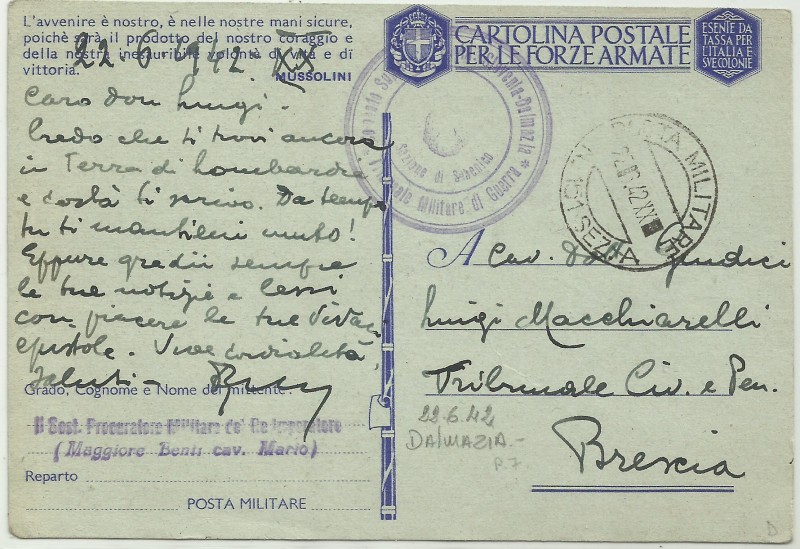 L'avvenire è nostro, è nelle nostre mani sicure,
poichè sarà il prodotto del nostro coraggio e
della nostra inesauribile volontà di vita e di
vittoria.
MUSSOLINI
22-6-1942-XX
Caro don Luigi.
Credo che ti trovi ancora
in Terra di Lombardia
e costà ti scrivo. Da tempo
tu ti mantieni muto!
Eppure gradii sempre
le tue notizie e lessi
con piacere le tue
epistole. Vive cordialità,
saluti-
Grado, Cognome e Nome del mittente:
Il Sost. Procuratore Militare de' Re Imperatore
(Maggiore Benti cav. Mario)
Reparto
POSTA MILITARE
CARTOLINA POSTALE
PER LE FORZE ARMATE
ESENTE DA
TASSA PER
L'ITALIA E
SVE COLONIE
Dalmazia
Tribunale Militare di Guerra
Sezione di Sebenico
POSTA MILITARE
22.6.42.XX
SEZ.A
A Cav. Dott. Giudici
Luigi Macchiarelli
Tribunale Civ. e Pen.
Brescia
22.6.42
DALMAZIA.-
P.7
D